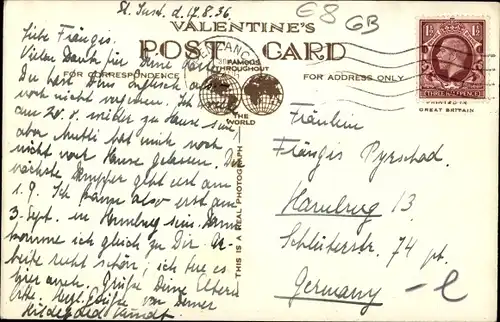 St. Just. d. 17.8.36.
E8 GB
VALENTINE'S
POST CARD
FAMOUS
THROUGHOUT
THE
WORLD
FOR CORRESPONDENCE
FOR ADDRESS ONLY
1½ 1½
THREE HALFPENCE
PRINTED IN
GREAT BRITAIN
THIS IS A REAL PHOTOGRAPH
Liebe Frängis.
Vielen Dank für Deine Karte.
Du hast Dein englisch also
noch nicht vergessen. Ich
am 20.8. wieder zu Hause sein,
aber Mutti hat mich noch
nicht nach Hause gelassen. Der
nächste Dampfer geht erst am
1.9. Ich kann also erst am
3. Sept. in Hamburg sein. Dann
komme ich gleich zu Dir. Ar-
beite recht schön, ich tue es
hier auch. Grüße Deine Eltern
Herzl. Grüße von Deiner
Hildegard
Fräulein
Frängis Pyrschad.
Hamburg 13.
Schlüterstr. 74 pt.
Germany